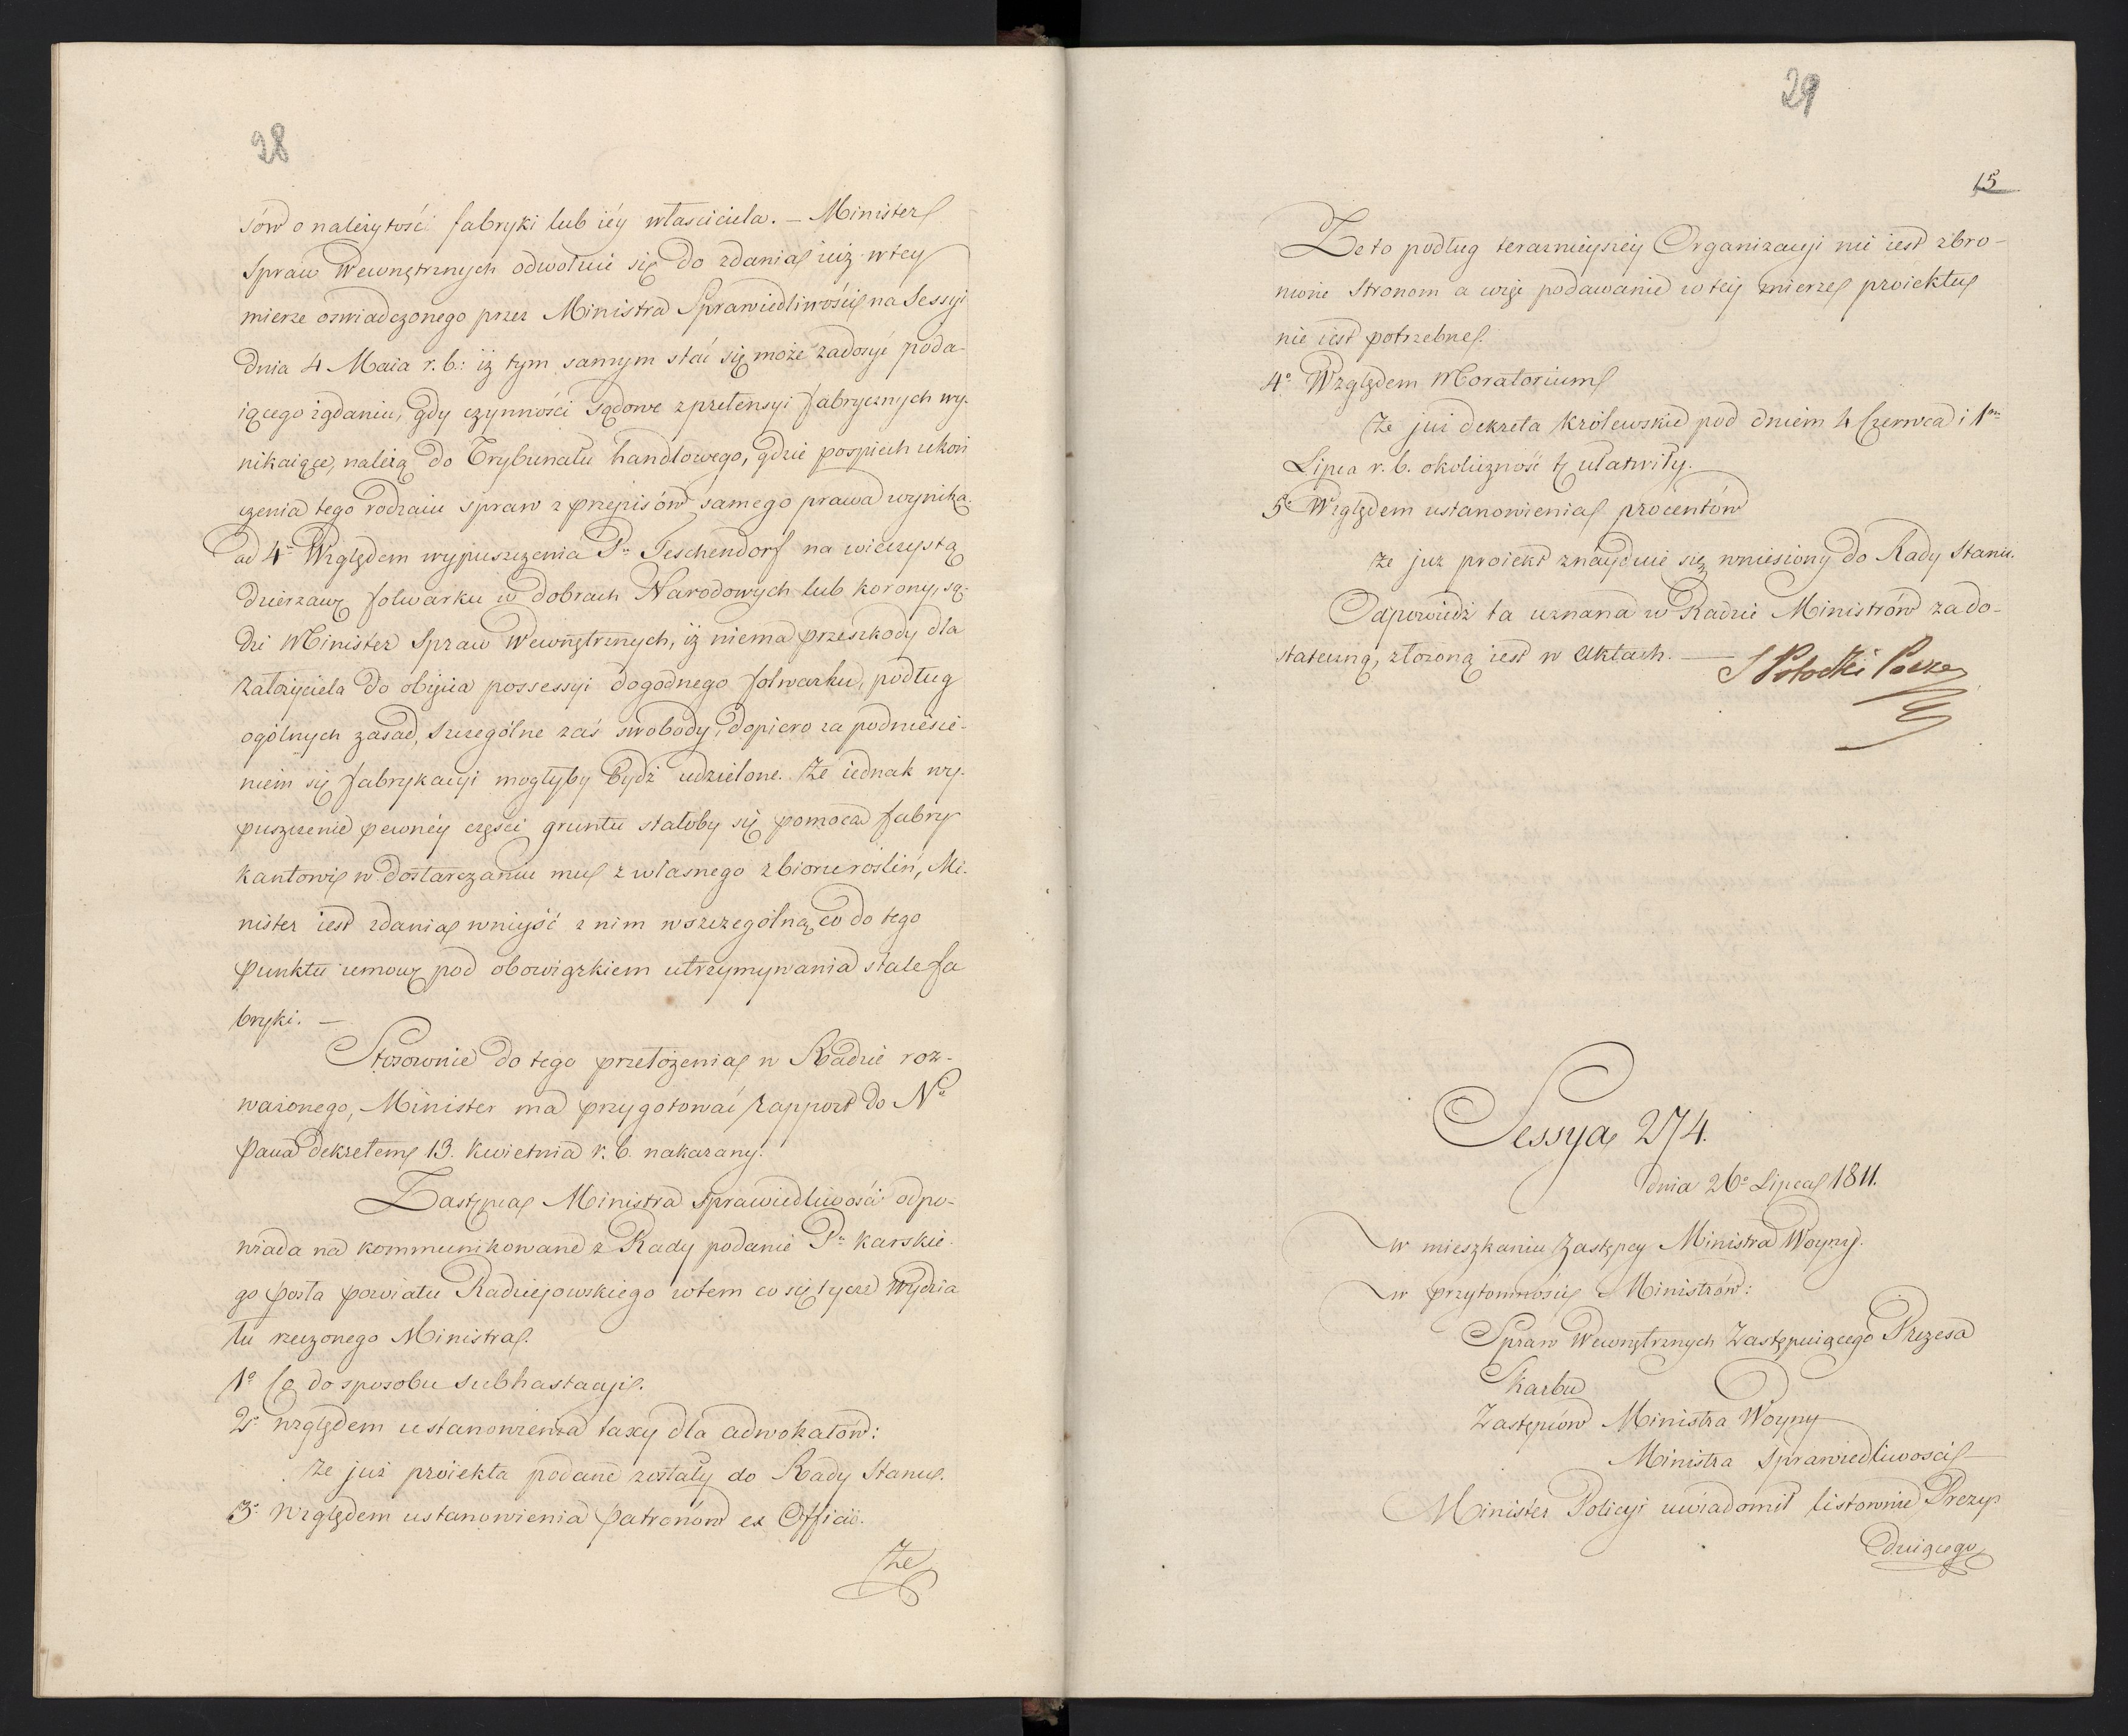 28
sów o należytość fabryki lub iéy własciciela. – Minister
Spraw Wewnętrznych odwołuie się do zdania iuż w tey
mierze oswiadczonego przez Ministra Sprawiedliwości na Sessyi
dnia 4 Maia r. b: iż tym samym stać się może zadosyć poda-
iącego żądaniu, gdy czynności sądowe z pretensyi fabrycznych wy-
nikaiące, należą do Trybunału handlowego, gdzie pospiech ukoń
czenia tego rodzaiu spraw z przepisów samego prawa wynika.
ad 4° Względem wypuszczenia Pu Teschendorf na wieczystą
dzierzawę folwarku w dobrach Narodowych lub korony, są-
dzi Minister Spraw Wewnętrznych, iż niema przeszkody dla
założyciela do obięcia possessyi dogodnego folwarku, podług
ogólnych zasad, szczególne zaś swobody, dopiero za podniesie-
niem się fabrykacyi mogłyby bydź udzielone. Że iednak wy-
puszczenie pewnéy części gruntu stałoby się pomocą fabry
kantowi w dostarczaniu mu z własnego zbioru roslin, Mi-
nister iest zdania wniyść z nim w szczególną co do tego
punktu umowę pod obowiązkiem utrzymywania stale fa
bryki. –
Stosownie do tego przełożenia w Radzie roz-
ważonego, Minister ma przygotować rapport do No
Pana dekretem 13. Kwietnia r. b. nakazany.
Zastępca Ministra Sprawiedliwości odpo-
wiada na kommunikowane z Rady podanie Pa Karskie-
go posła powiatu Radziejowskiego w tem co się tycze Wydzia
łu rzeczonego Ministra.
1° Co do sposobu subhastacyi.
2° względem ustanowienia taxy dla adwokatów:
że już proiekta podane zostały do Rady Stanu.
3° względem ustanowienia Patronów ex Officio.
Że
29
15
Że to podług teraznieyszéy Organizacyi nie iest zbro-
nione Stronom a więc podawanie w téy mierze proiektu
nie iest potrzebne.
4° Względem Moratorium
Że już dekreta Królewskie pod dniem 4 Czerwca i 1m
Lipca r. b. okoliczność tę ułatwiły.
5° Względem ustanowienia procentów
że już proiekt znayduie się wniesiony do Rady Stanu.
Odpowiedź ta uznana w Radzie Ministrów za do-
stateczną, złożoną iest w Aktach. –
S Potocki Prezes
Sessya 274.
dnia 26° Lipca 1811.
w mieszkaniu Zastępcy Ministra Woyny.
w przytomności Ministrów:
Spraw Wewnętrznych Zastępuiącego Prezesa
Skarbu
Zastępców Ministra Woyny
Ministra Sprawiedliwosci
Minister Policyi uwiadomił listownie Prezy-
duiącego